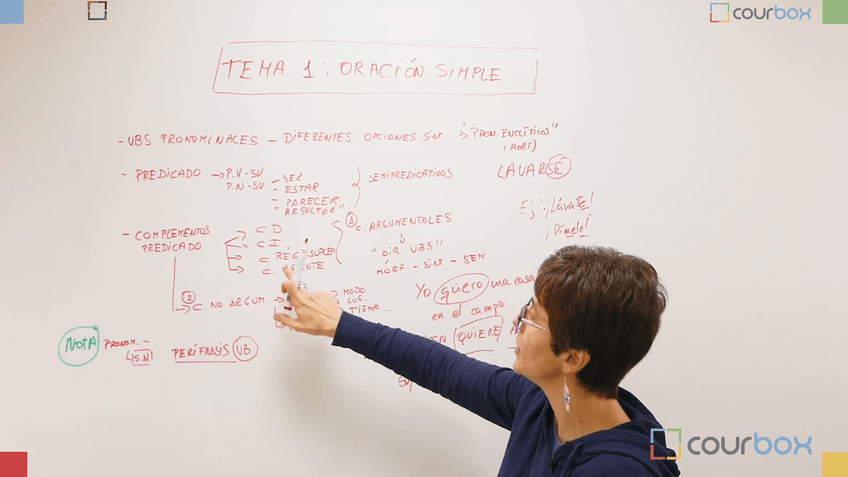 courbox
TEMA 1: ORACIÓN SIMPLE
- VBS PRONOMINALES - DIFERENTES OPCIONES SINT. => "PRON. ENCLÍTICO"
(MORF)
- PREDICADO → P.V - SV
P.N - SV
- SER
- ESTAR
- PARECER
"RESULTAR"
SEMIPREDICATIVOS
LAVARSE
Ej: ¡Lávate!
¡Dímelo!
- COMPLEMENTOS
PREDICADO
C.D
C.I
C. RÉG
C. AGENTE
1 C. ARGUMENTALES
"OIR VBS"
MORF - SINT - SEM.
2 C. NO ARGUM. →
MODO
LUG.
TIEMPO...
Yo quiero una casa
en el campo
QUIERE
NOTA
PRONOM. -
SN
PERÍFRASIS VB
courbox